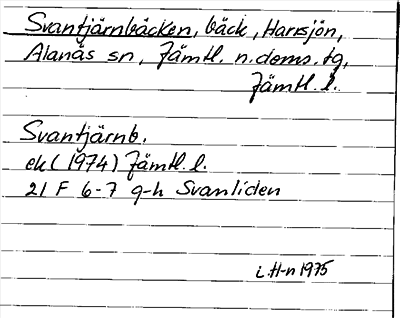 Svantjärnbäcken, bäck, Harrsjön,
Alanäs sn, Jämtl. n. doms. tg,
Jämtl. l.
Svantjärnb.
ek (1974) Jämtl. l.
21 F 6-7 g-h Svanliden
i.H-n 1975